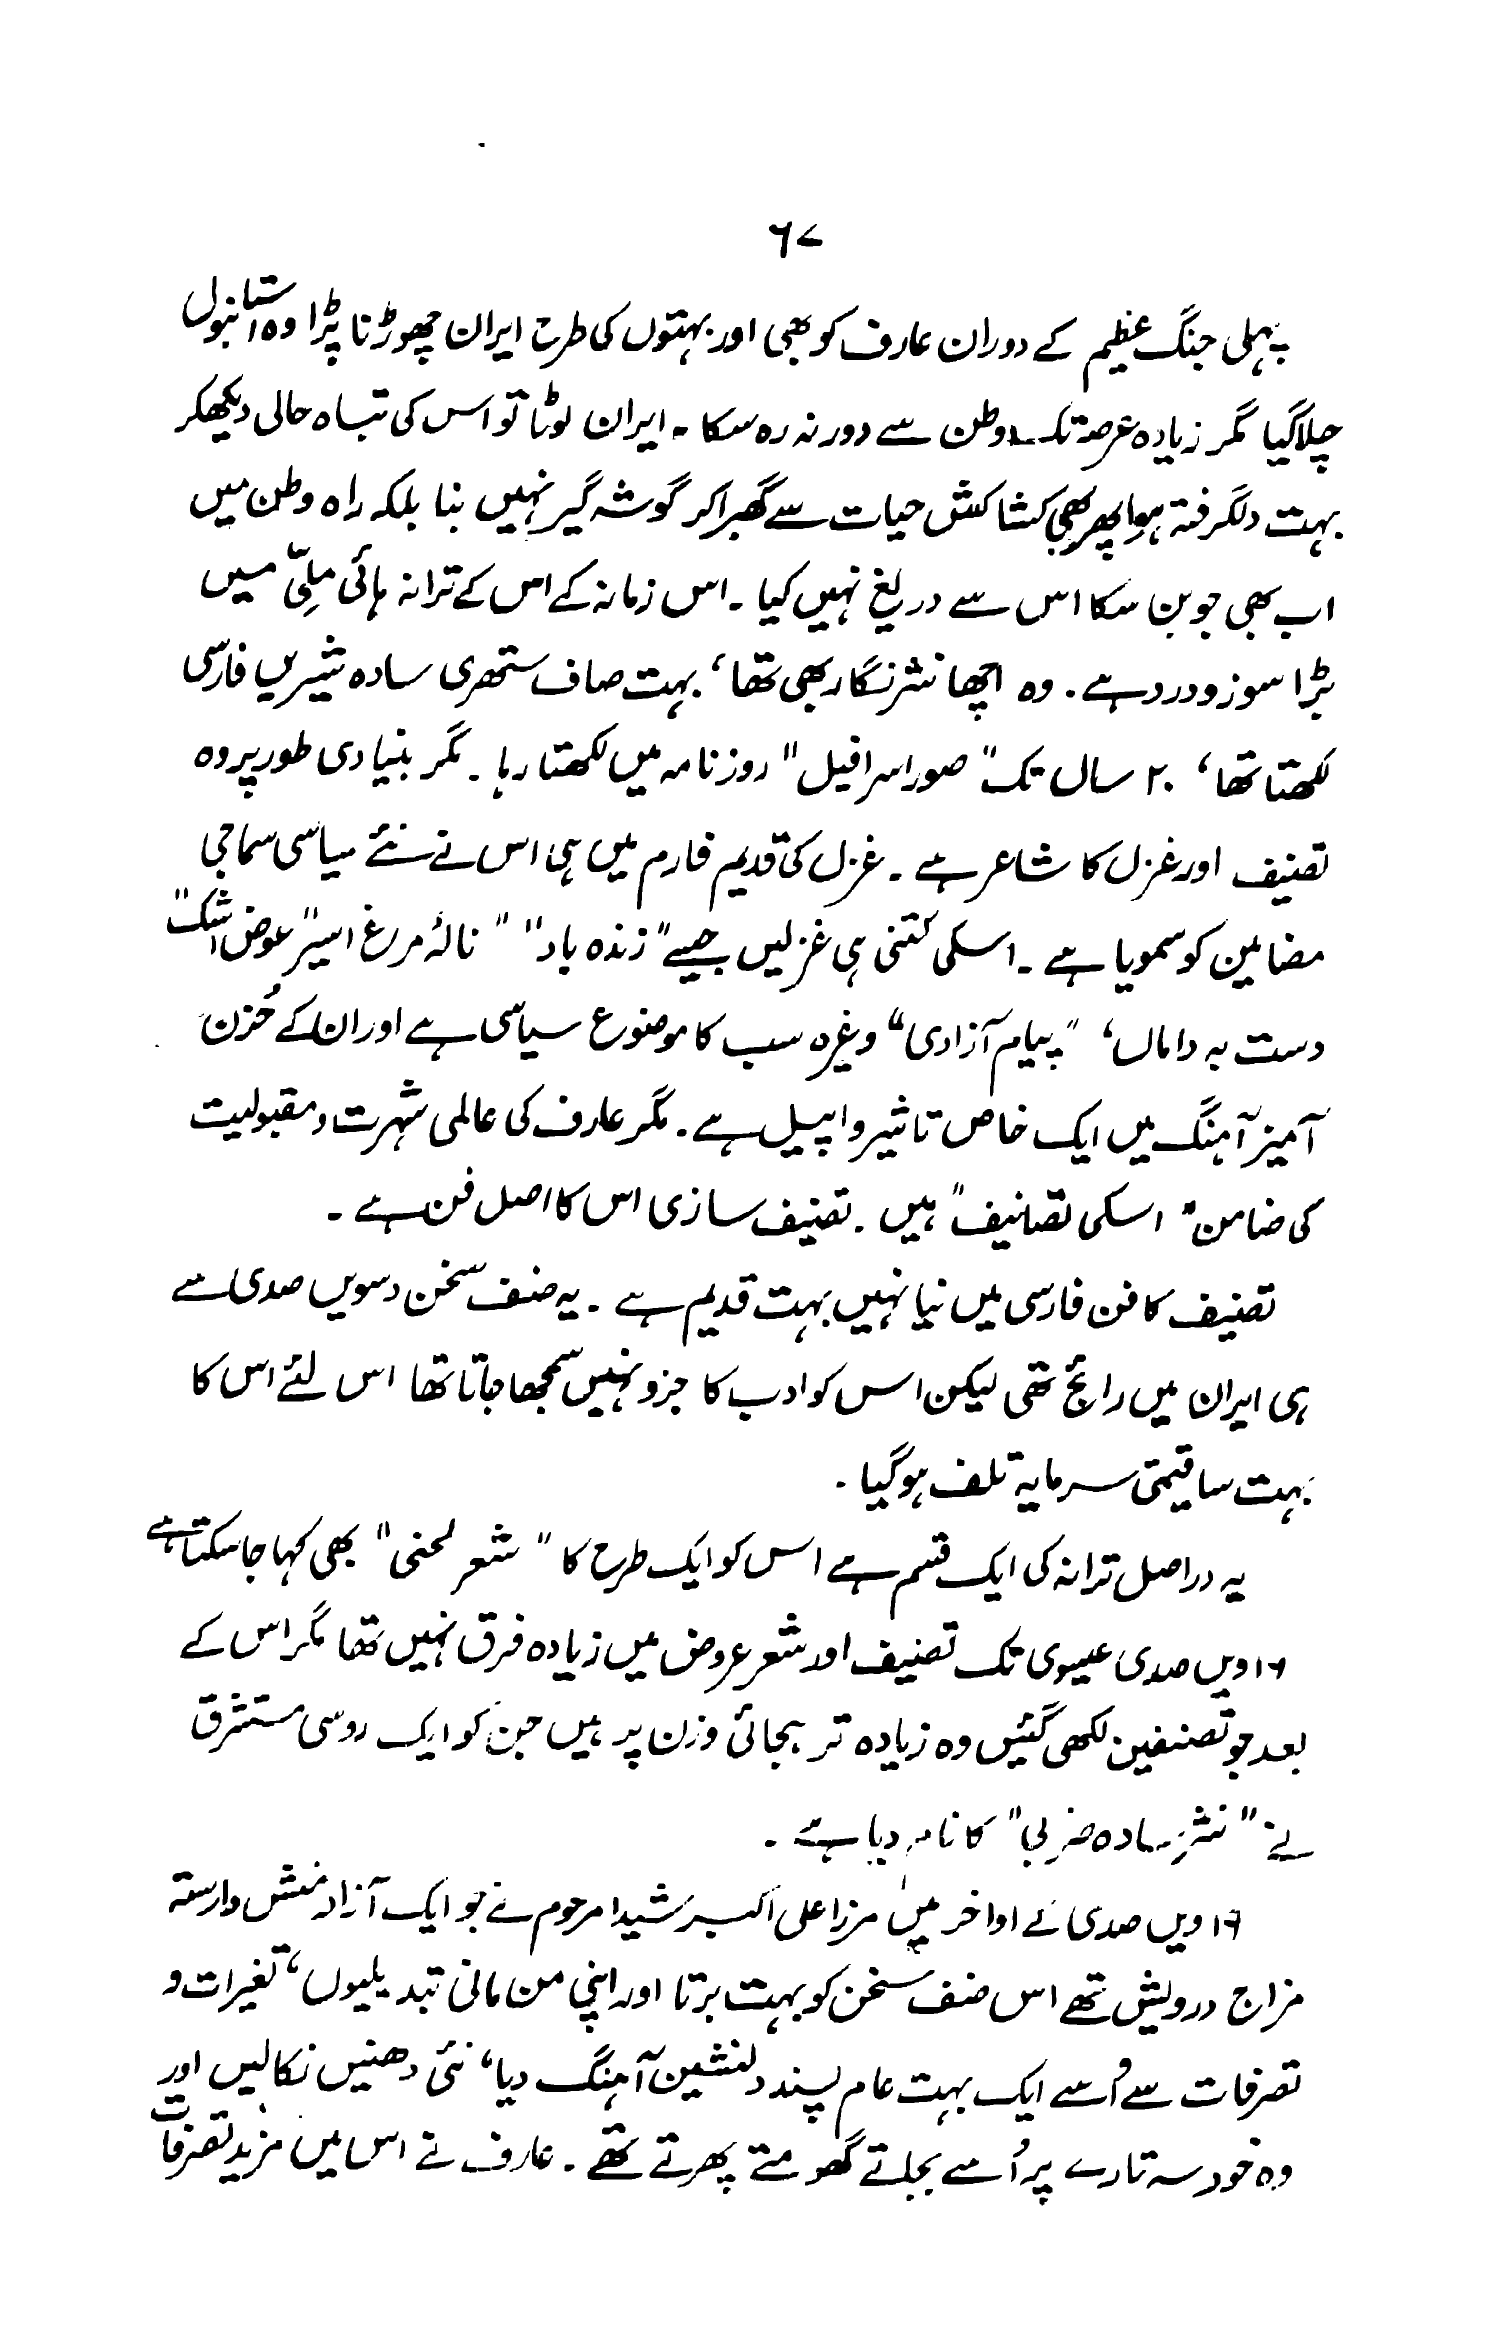 ۶۷
پہلی جنگ عظیم کے دوران عارف کو بھی اور بہتوں کی طرح ایران چھوڑنا پڑا وہ استانبول
چلا گیا مگر زیادہ عرصہ تک وطن سے دور نہ رہ سکا ۔ ایران لوٹا تو اس کی تباہ حالی دیکھکر
بہت دلگرفتہ ہوا پھر بھی کشاکش حیات سے گھبرا کر گوشہ گیر نہیں بنا بلکہ راہ وطن میں
اب بھی جو بن سکا اس سے دریغ نہیں کیا ۔ اس زمانہ کے اس کے ترانہ ہائی ملّی میں
بڑا سوز و درد ہے ۔ وہ اچھا نثر نگار بھی تھا، بہت صاف ستھری سادہ شیریں فارسی
لکھتا تھا، ۲۰ سال تک "صور اسرافیل" روزنامہ میں لکھتا رہا ۔ مگر بنیادی طور پر وہ
تصنیف اور غزل کا شاعر ہے ۔ غزل کی قدیم فارم میں ہی اس نے نئے سیاسی سماجی
مضامین کو سمویا ہے ۔ اسکی کتنی ہی غزلیں جیسے "زندہ باد" "نالۂ مرغ اسیر" عوض اشک"
دست بہ داماں، "پیام آزادی" وغیرہ سب کا موضوع سیاسی ہے اور ان کے حُزن
آمیز آہنگ میں ایک خاص تاثیر و اپیل ہے ۔ مگر عارف کی عالمی شہرت و مقبولیت
کی ضامن "اسکی تصانیف" ہیں ۔ تصنیف سازی اس کا اصل فن ہے ۔
تصنیف کا فن فارسی میں نیا نہیں بہت قدیم ہے ۔ یہ صنف سخن دسویں صدی سے
ہی ایران میں رائج تھی لیکن اس کو ادب کا جزو نہیں سمجھا جاتا تھا اس لئے اس کا
بہت سا قیمتی سرمایہ تلف ہو گیا ۔
یہ دراصل ترانہ کی ایک قسم ہے اس کو ایک طرح کا "شعر لحنی" بھی کہا جا سکتا ہے
۱۶ویں صدی عیسوی تک تصنیف اور شعر عروض میں زیادہ فرق نہیں تھا مگر اس کے
بعد جو تصنفین لکھی گئیں وہ زیادہ تر ہجائی وزن پر ہیں جن کو ایک روسی مستشرق
نے "نثر سادہ ضربی" کا نام دیا ہے ۔
۱۹ ویں صدی کے اواخر میں مرزا علی اکبر شیدا مرحوم نے جو ایک آزاد منش وارستہ
مزاج درویش تھے اس صنف سخن کو بہت برتا اور اپنی من مانی تبدیلیوں، تغیرات و
تصرفات سے اُسے ایک بہت عام پسند دلنشین آہنگ دیا، نئی دھنیں نکالیں اور
وہ خود سہ تارے پر اُسے بجاتے گھومتے پھرتے تھے ۔ عارف نے اس میں مزید تصرفات